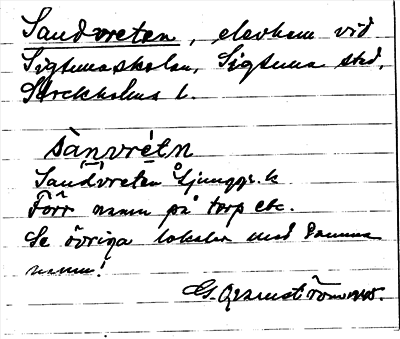 Sandvreten, elevhem vid
Sigtunaskolan, Sigtuna stad,
Stockholms l.
sànvrétn
Sandvreten Ljunggr. k
Förr namn på torp etc.
Se övriga lokaler med samma
namn!
G.